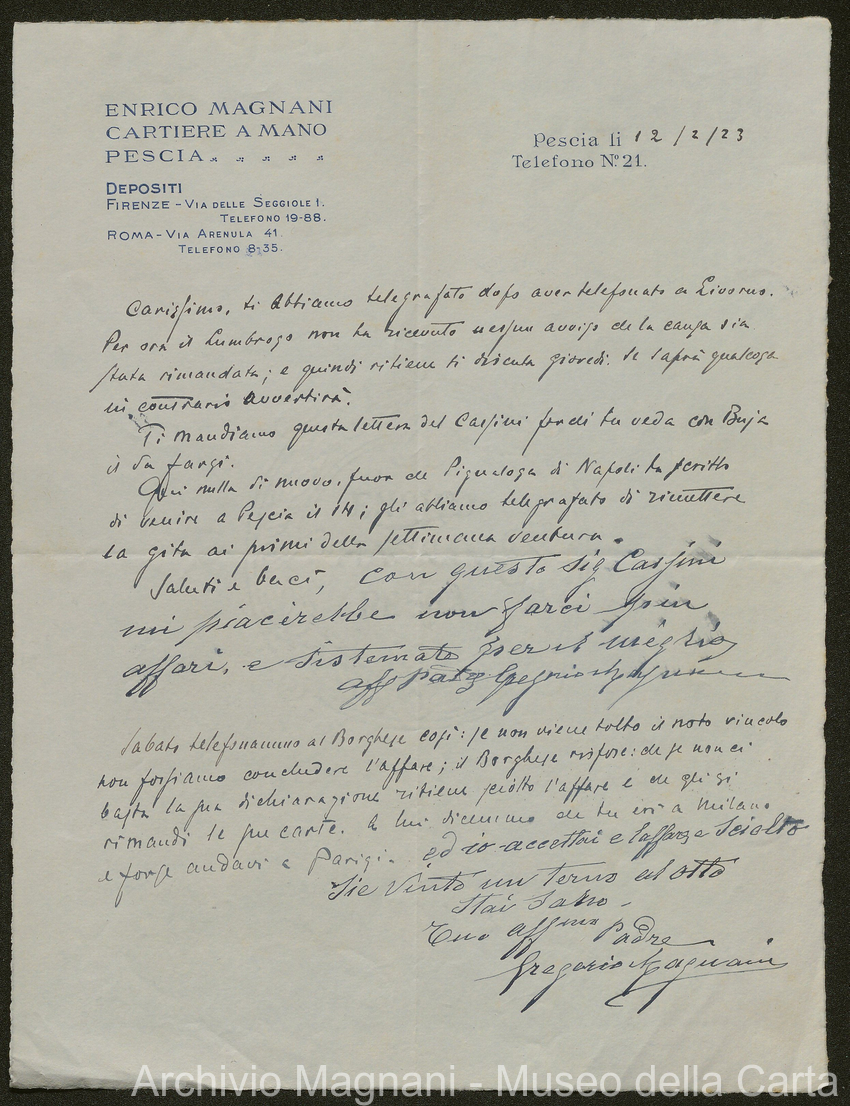 ENRICO MAGNANI
CARTIERE A MANO
PESCIA
Pescia li 12/2/23
Telefono Nº 21.
DEPOSITI
FIRENZE - VIA DELLE SEGGIOLE 1.
TELEFONO 19-88.
ROMA - VIA ARENULA 41
TELEFONO 8-35.
Carissimo, ti abbiamo telegrafato dopo aver telefonato a Livorno.
Per ora il Lumbroso non ha ricevuto nessun avviso che la causa sia
stata rimandata; e quindi ritiene si discuta giovedì. Se saprà qualcosa
in contrario avvertirà.
Ti mandiamo questa lettera del Cassini perchè tu veda con Buja
il da farsi.
Qui nulla di nuovo, fuor che Pignalosa di Napoli ha scritto
di venire a Pescia il 14; gli abbiamo telegrafato di rimettere
la gita ai primi della settimana ventura.
Saluti e baci, con questo sig Cassini
mi piacerebbe non farci più
affari, e sistemate per il meglio
aff Padre Gregorio Magnani
Sabato telefonammo al Borghese così: se non viene tolto il noto vincolo
non possiamo concludere l'affare; il Borghese rispose: che se non ci
basta la sua dichiarazione ritiene sciolto l'affare e che gli si
rimandi le sue carte. A lui dicemmo che tu eri a Milano
e forse andavi a Parigi. ed io accettai e l'affare e Sciolto
Sie Vinto un terno al otto
Stai Sano.
Tuo affmo Padre
Gregorio Magnani
Archivio Magnani - Museo della Carta